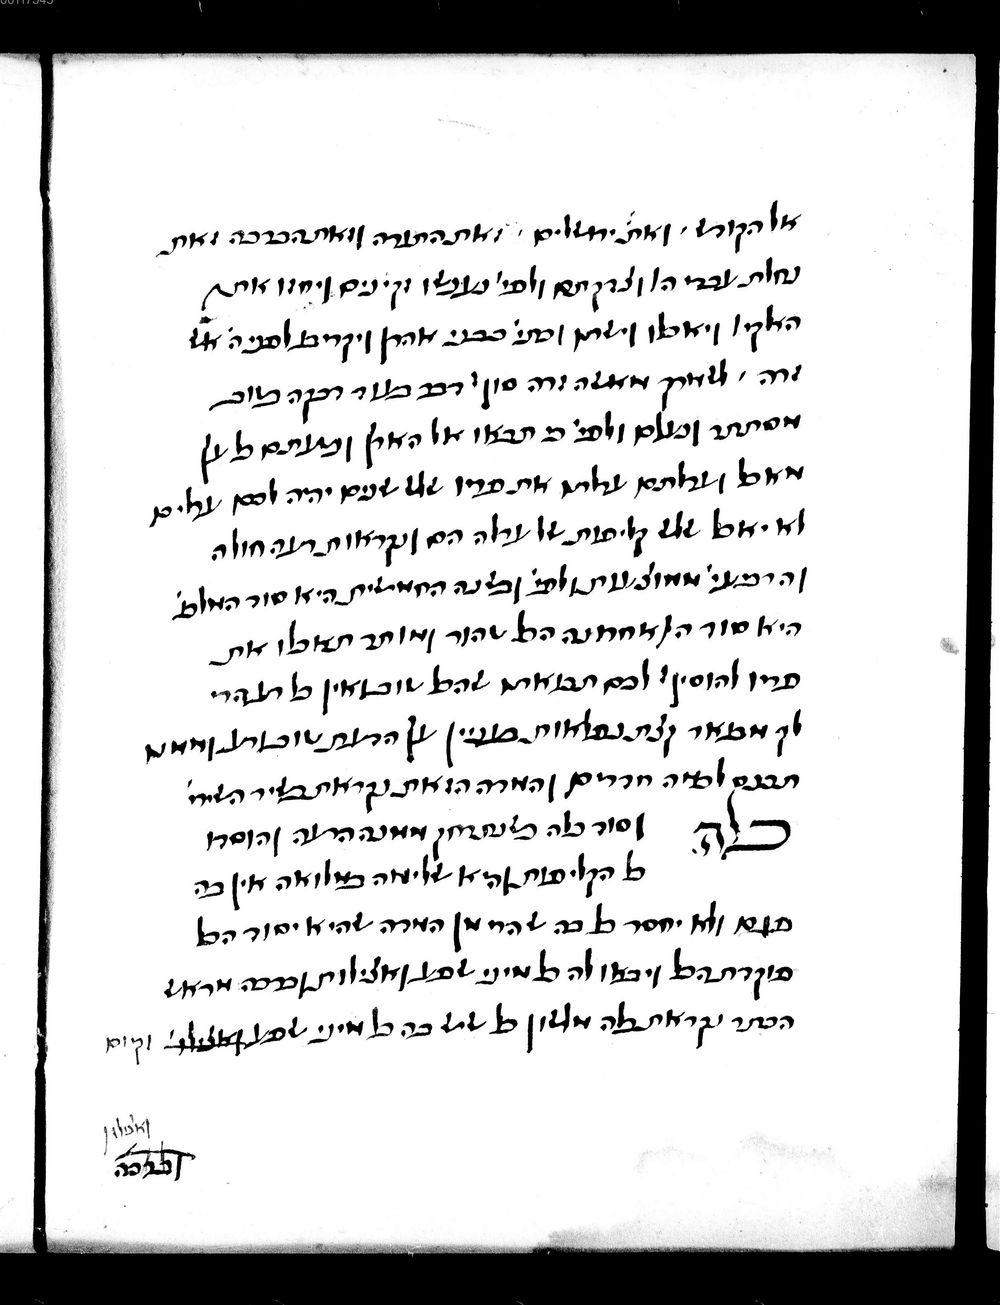 אל הקודש ׳ ואת ירושלים ׳ זאת התורה וזאת הברכה זאת
נחלת עבדי ה׳ וצדקתם ולפי׳ נענשו זקינים ויחזו את
האקים ויאכלו וישתו וכתי׳ בבני אהרן ויקריבו לפני ה׳ אש
זרה ׳ לשארך מאשה זרה סוד רב בעוד דבקה בטוב
מסתתר ונעלם ולפי׳ כי תבאו אל הארץ ונטעתם כל עץ
מאכל וערלתם ערלתו את פריו שלש שנים יהיה לכם ערלים
לא יאכל שלש קליפות של ערלה הם ונקראות רעה חולה
והרביעי׳ ממוצעת ולפי׳ ובשנה החמישית היא סוד המלכ׳
היא סוד ה׳ אחרונה הכל טהור ומותר תאכלו את
פריו להוסיף לכם תבואתו שהכל טוב ואין כל רע הרי
לך מבואר קצת נפלאות בעניין עץ הדעת טוב ורע וממנו
תבנס לאיזה חדרים והמדה הזאת נקראת בשיר השירי׳
כלה וסוד כלה כשנתרחק ממנה הרעה והוסרו
כל הקליפות והיא שלימה במלואה אין בה
פגם ולא יחסר כל בה שהרי מן המדה שהיא יסוד הכל
פוקדת הכל ויבאו לה כל מיני שפע ואצילות וברכה מראש
הכתר נקראת כלה מלשון כל שיש בה כל מיני שפע ואצילו׳ וקיום
ואצילות
וברכה